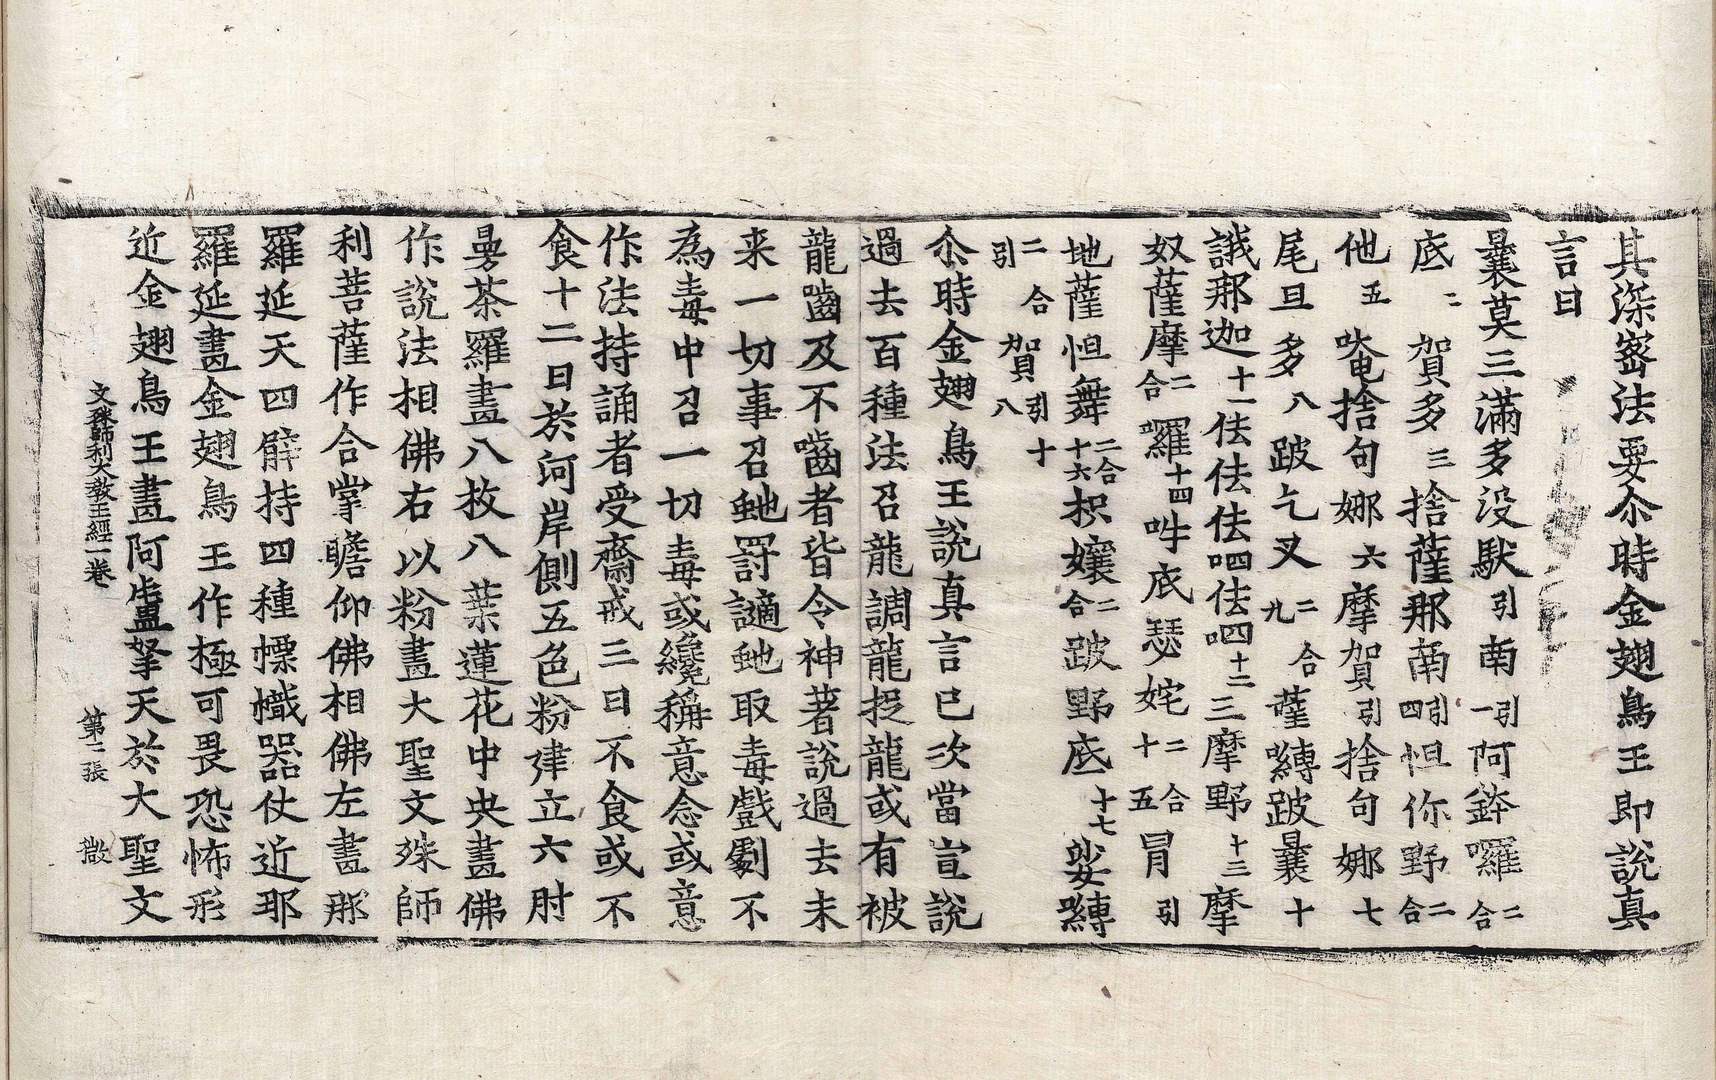 其深密法要尒時金翅鳥王即說真
言曰
曩莫三滿多沒馱引南引一阿鉢囉二合
底二賀多三捨薩那南引四怛你野二合
他五唵捨句娜六摩賀引捨句娜七
尾旦多八跛乞叉二合九薩嚩跛曩十
誐那迦十一佉佉佉呬佉呬十二三摩野十三摩
奴薩摩二合囉十四吽底瑟姹二合十五冐引
地薩怛舞二合十六枳孃二合跛野底十七娑嚩
二合引賀引十八
尒時金翅鳥王說真言已次當宣說
過去百種法召龍調龍捉龍或有被
龍齧及不齧者皆令神著說過去未
来一切事召虵罸讁虵取毒戲劇不
為毒中召一切毒或纔稱意念或意
作法持誦者受齋戒三日不食或不
食十二日於河岸側五色粉建立六肘
曼荼羅畫八枚八葉蓮花中央畫佛
作說法相佛右以粉畫大聖文殊師
利菩薩作合掌瞻仰佛相佛左畫那
羅延天四臂持四種幖幟器仗近那
羅延畫金翅鳥王作極可畏恐怖形
近金翅鳥王畫阿盧拏天於大聖文
文殊師利大教王經一卷 第二張 㪚